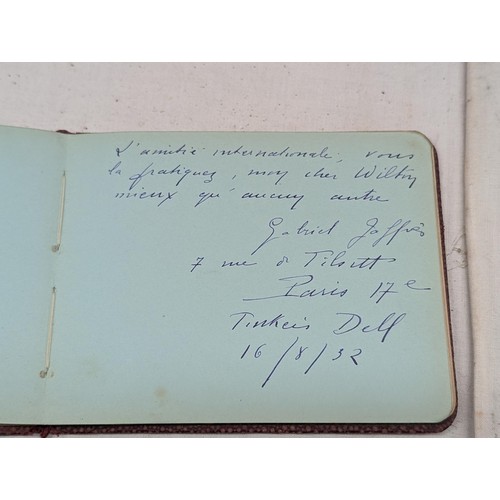 L'amitié internationale, vous
la pratiquez, mon cher Wilton
mieux qu'aucun autre
Gabriel Jaffrès
7 rue de Tilsitt
Paris 17e
Tinkers Dell
16/8/32